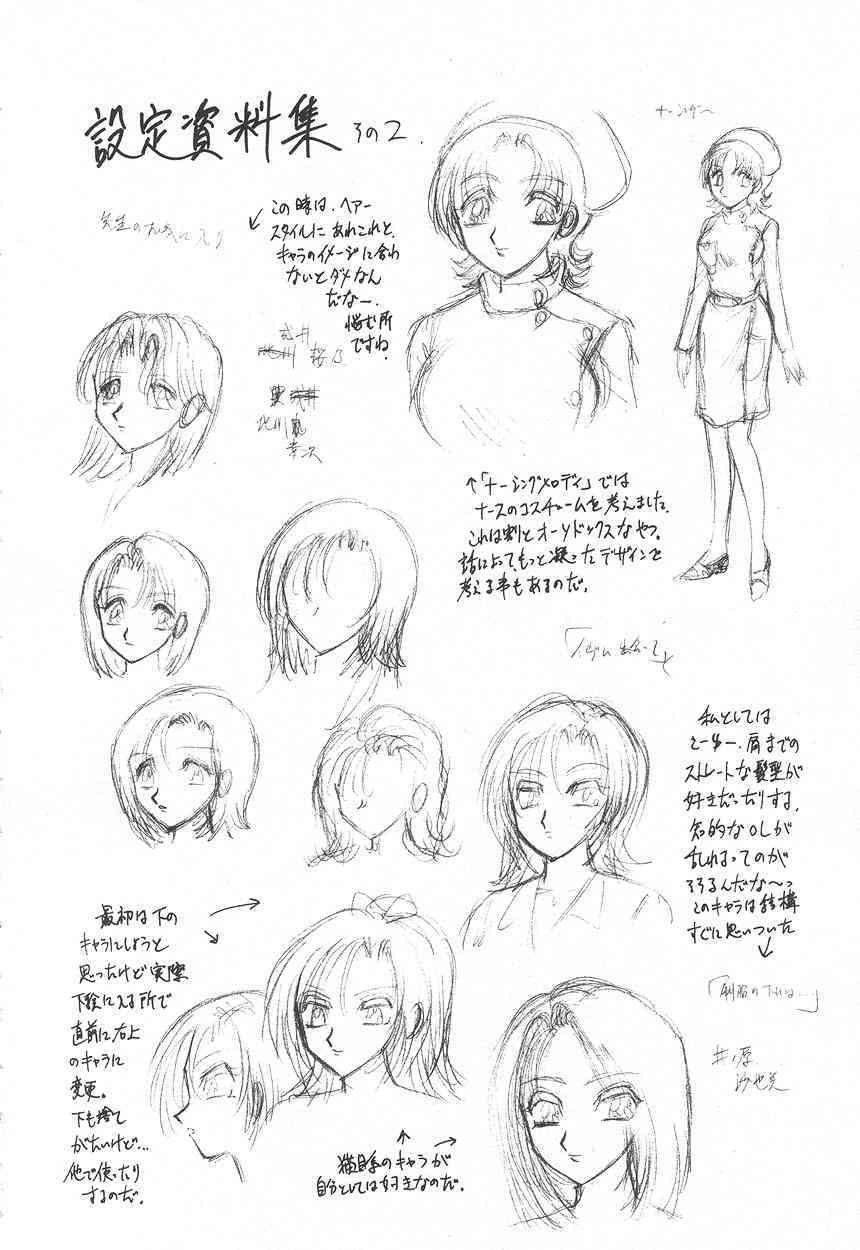 設定資料集 その2.
ナージング〜
先生のお気に入り
この時は、ヘアー
スタイルにあれこれと、
キャラのイメージに合わ
ないとダメなん
だなー.
悩む所
ですね.
桜乃
北川
幸次
↑「ナーシングメロディ」では
ナースのコスチュームを考えました.
これは割とオーソドックスなやつ.
話によって、もっと凝ったデザインで
考える事もあるのだ.
私としては
肩までの
ストレートな髪型が
好きだったりする.
知的なOLが
乱れるってのが
そそるんだな〜っ
このキャラは結構
すぐに思いついた
「制服の下には…」
井ノ原
沙也
最初は下の
キャラにしようと
思ったけど実際
下絵に入る所で
直前に右上
のキャラに
変更。
下も捨て
がたいけど…
他で使ったり
するのだ.
猫目系のキャラが
自分としては好きなのだ.